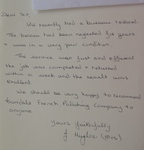 Dear Sir
We recently had a bureau restored
The bureau has been neglected for years
& was in a very poor condition
The service was fast and efficient
the job was completed & returned
within a week and the result was
excellent.
We should be very happy to recommend
French Polishing Company to
anyone
Yours faithfully